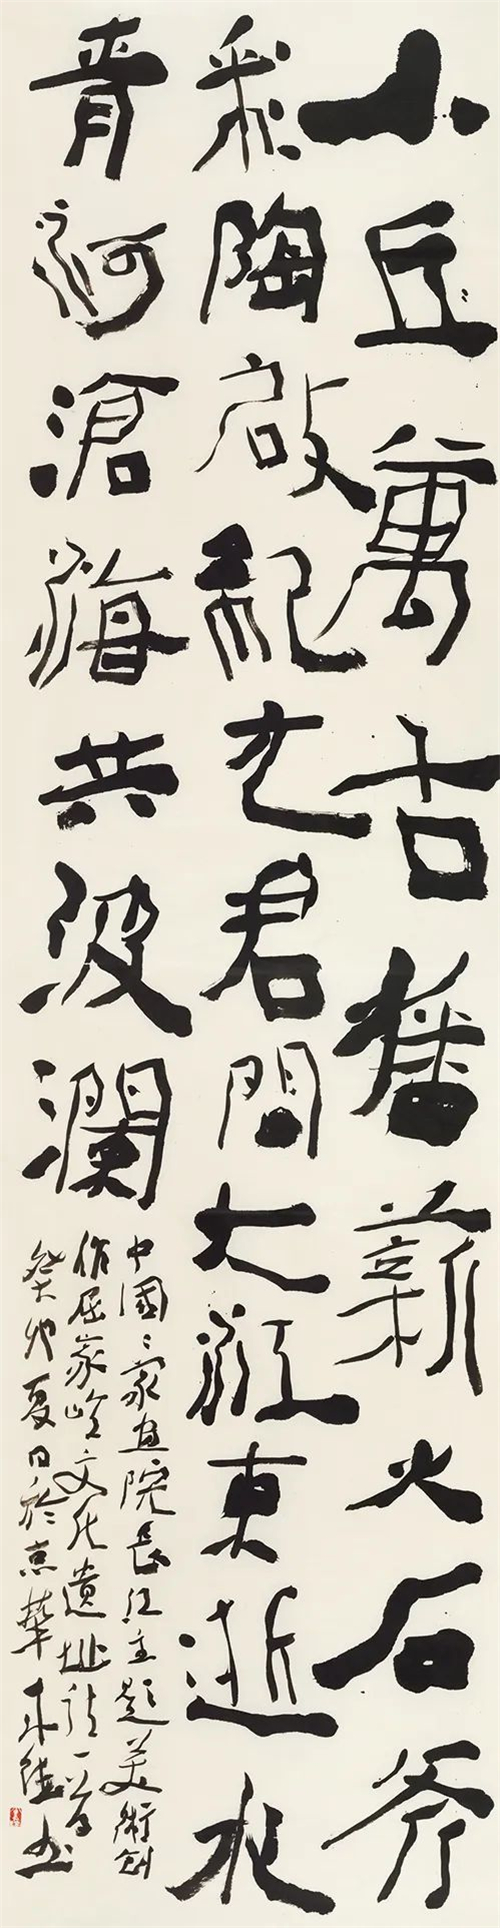 小丘萬古播薪火石斧
彩陶啟紀元君問大江東逝水
青河滄海共波瀾
中國〻家画院長江主題美術創
作屈家嶺文化遺址詩一首
癸卯夏日於京華 书